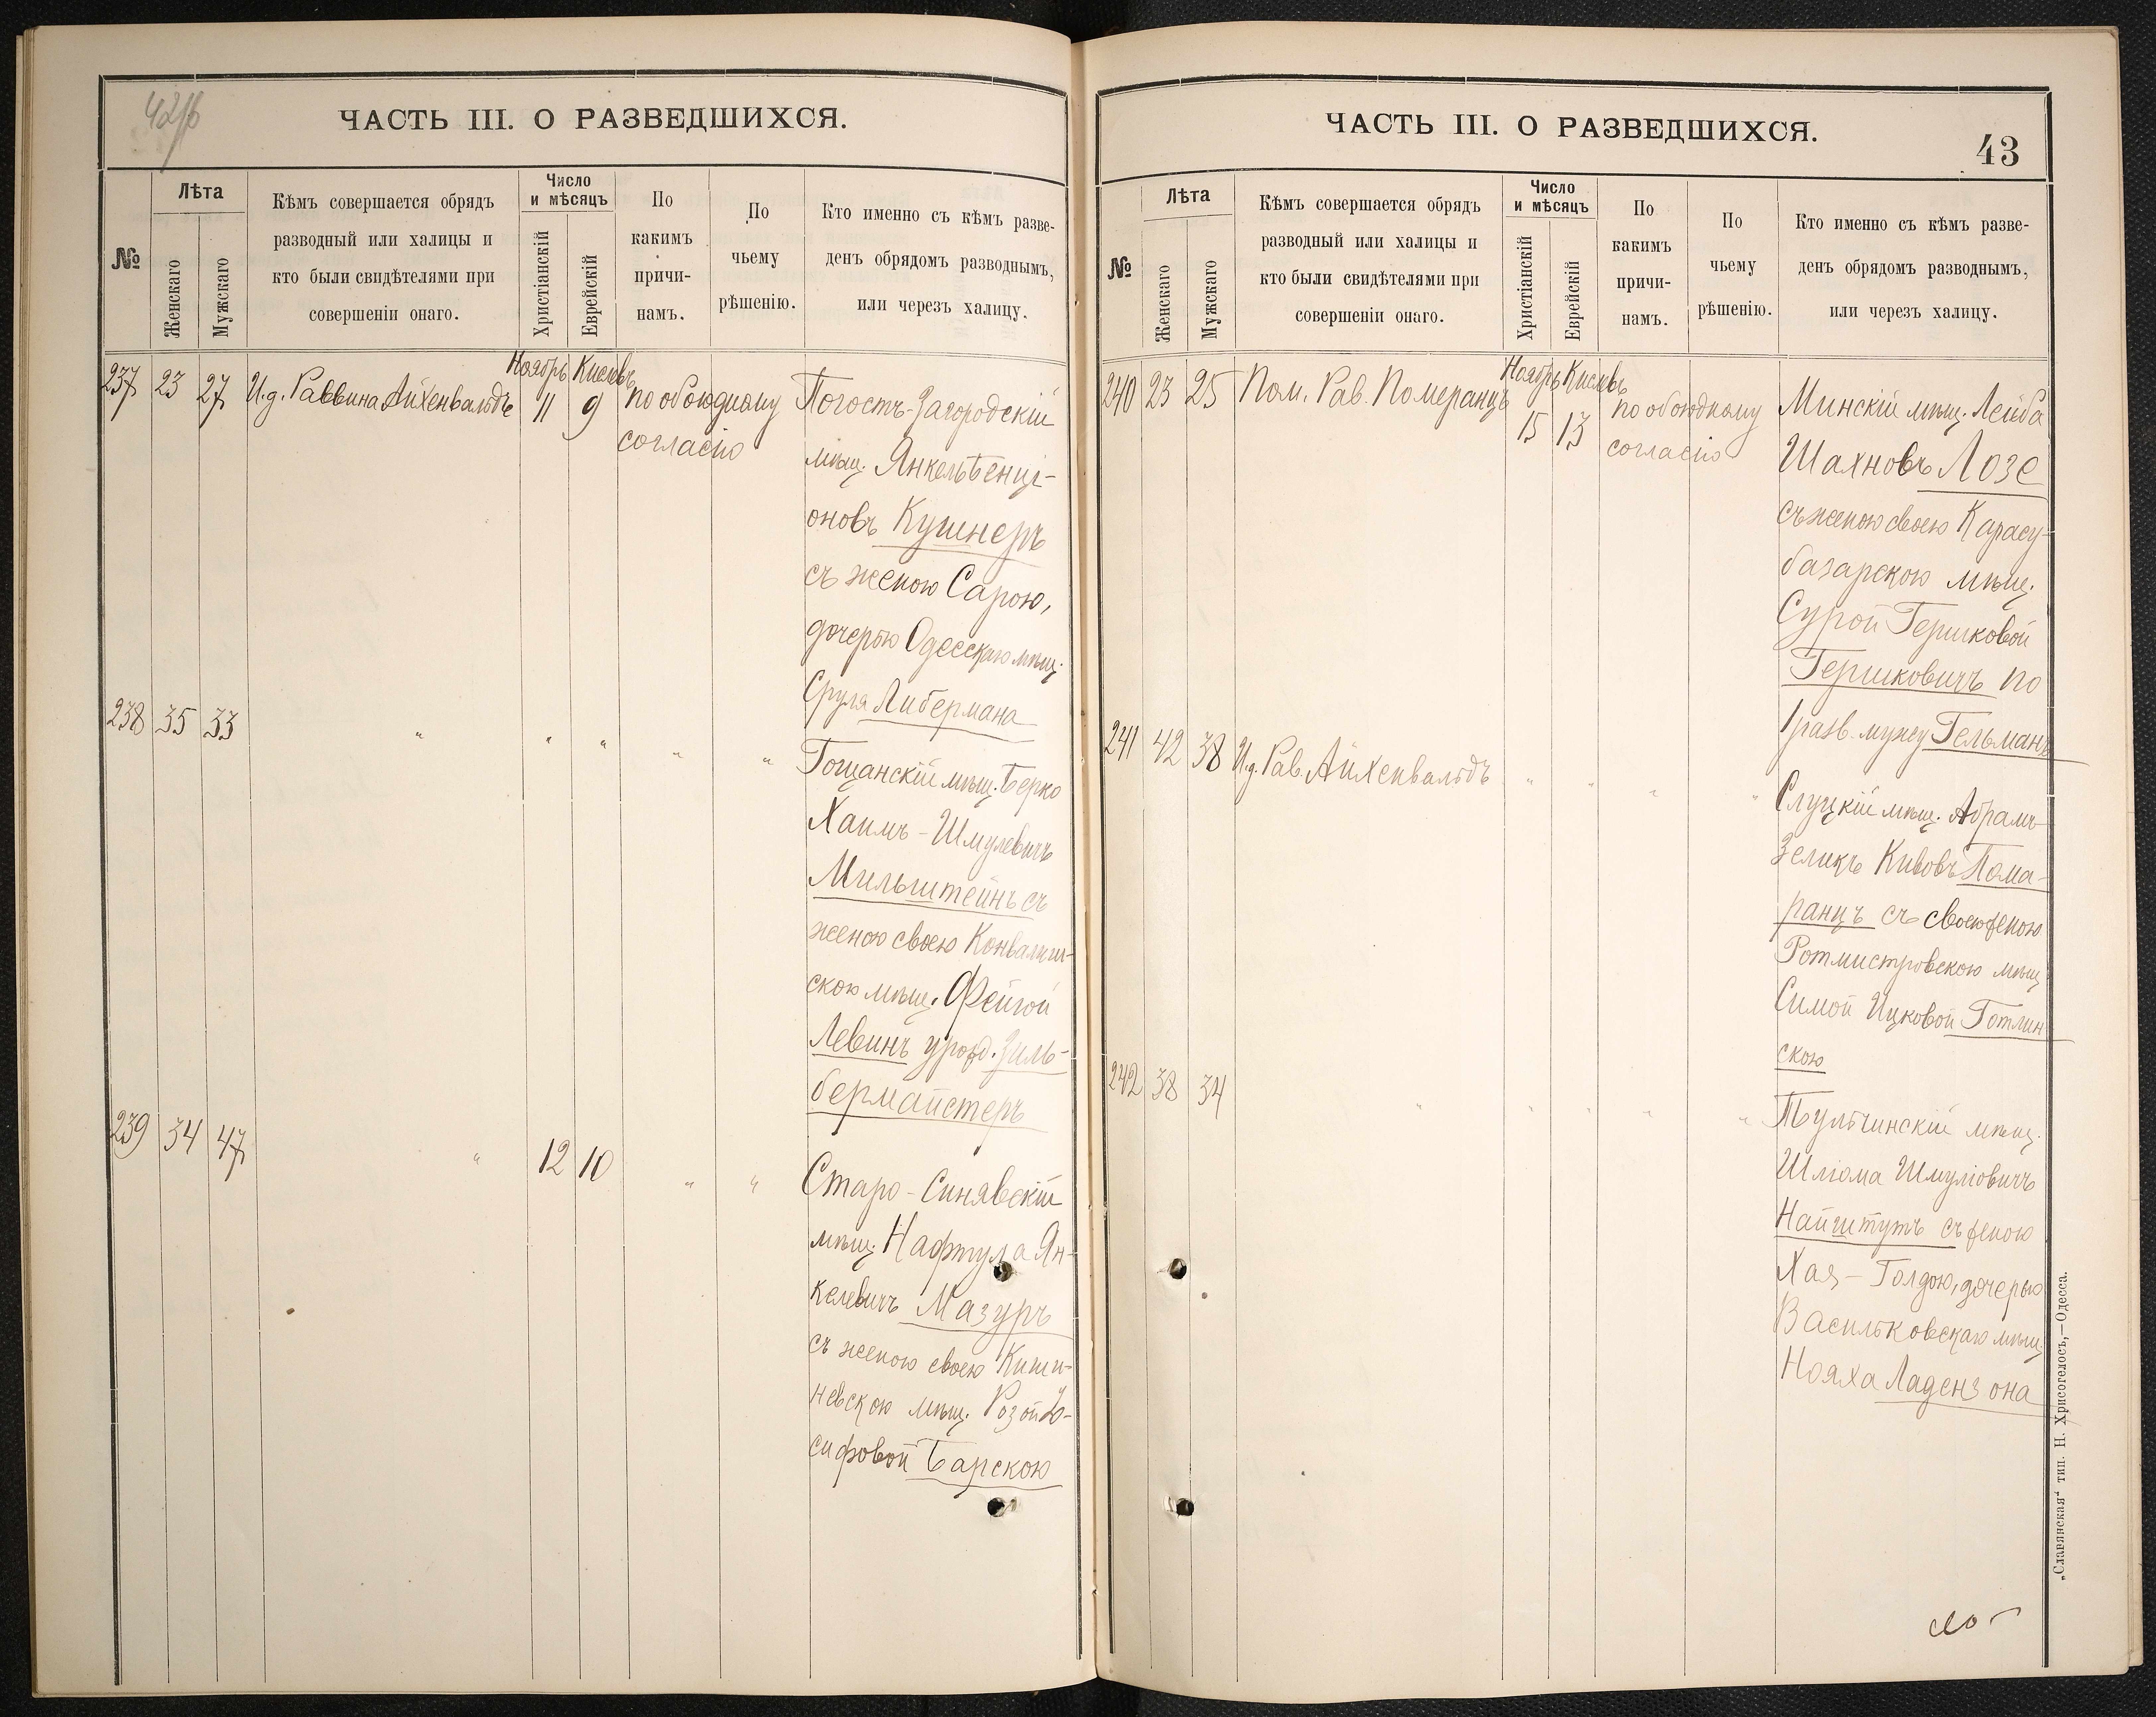 42/б
ЧАСТЬ III. О РАЗВЕДШИХСЯ.
№
Лѣта
Женскаго
Мужскаго
Кѣмъ совершается обрядъ
разводный или халицы и
кто были свидѣтелями при
совершеніи онаго.
Число
и мѣсяцъ
Христіанскій
Еврейскій
По
какимъ
причи-
намъ.
По
чьему
рѣшенію.
Кто именно съ кѣмъ разве-
денъ обрядомъ разводнымъ,
или черезъ халицу.
Ноябрь Кислевъ
237 23 27 И.д. Раввина Айхенвальдъ 11 9 по обоюдному
согласію
Погостъ-Загородскій
мѣщ. Янкель Бенці-
оновъ Кушнеръ
съ женою Сарою,
дочерью Одесскаго мѣщ.
Сруля Либермана
238 35 33 " " " " "
Гощанскій мѣщ. Берко
Хаимъ-Шмулевичъ
Мильштейнъ съ
женою своею Конвалиш-
скою мѣщ. Фейгой
Левинъ урожд. Зиль-
бермайстеръ
239 34 47 " 12 10 " "
Старо-Синявскій
мѣщ. Нафтула Ян-
келевичъ Мазуръ
съ женою своею Киши-
невскою мѣщ. Розой Іо-
сифовой Барскою
ЧАСТЬ III. О РАЗВЕДШИХСЯ.
43
№
Лѣта
Женскаго
Мужскаго
Кѣмъ совершается обрядъ
разводный или халицы и
кто были свидѣтелями при
совершеніи онаго.
Число
и мѣсяцъ
Христіанскій
Еврейскій
По
какимъ
причи-
намъ.
По
чьему
рѣшенію.
Кто именно съ кѣмъ разве-
денъ обрядомъ разводнымъ,
или черезъ халицу.
Ноябрь Кислевъ
240 23 25 Пом. Рав. Померанцъ 15 13 по обоюдному
согласію
Минскій мѣщ. Лейба
Шахновъ Лозе
съ женою своею Карасу-
базарскою мѣщ.
Сурой Гершковой
Гершковичъ по
1 разв. мужу Гельманъ
241 42 38 И.д. Рав. Айхенвальдъ " " " "
Слуцкій мѣщ. Абрамъ
Зеликъ Кивовъ Пома-
ранцъ съ своею женою
Ротмистровскою мѣщ.
Симой Ицковой Готлин
скою
242 38 34 " " " " "
Тульчинскій мѣщ.
Шліома Шмуліовичъ
Найштутъ съ женою
Хая-Голдою, дочерью
Васильковскаго мѣщ.
Нояха Ладензона
„Славянская“ тип. Н. Хрисогелосъ,—Одесса.